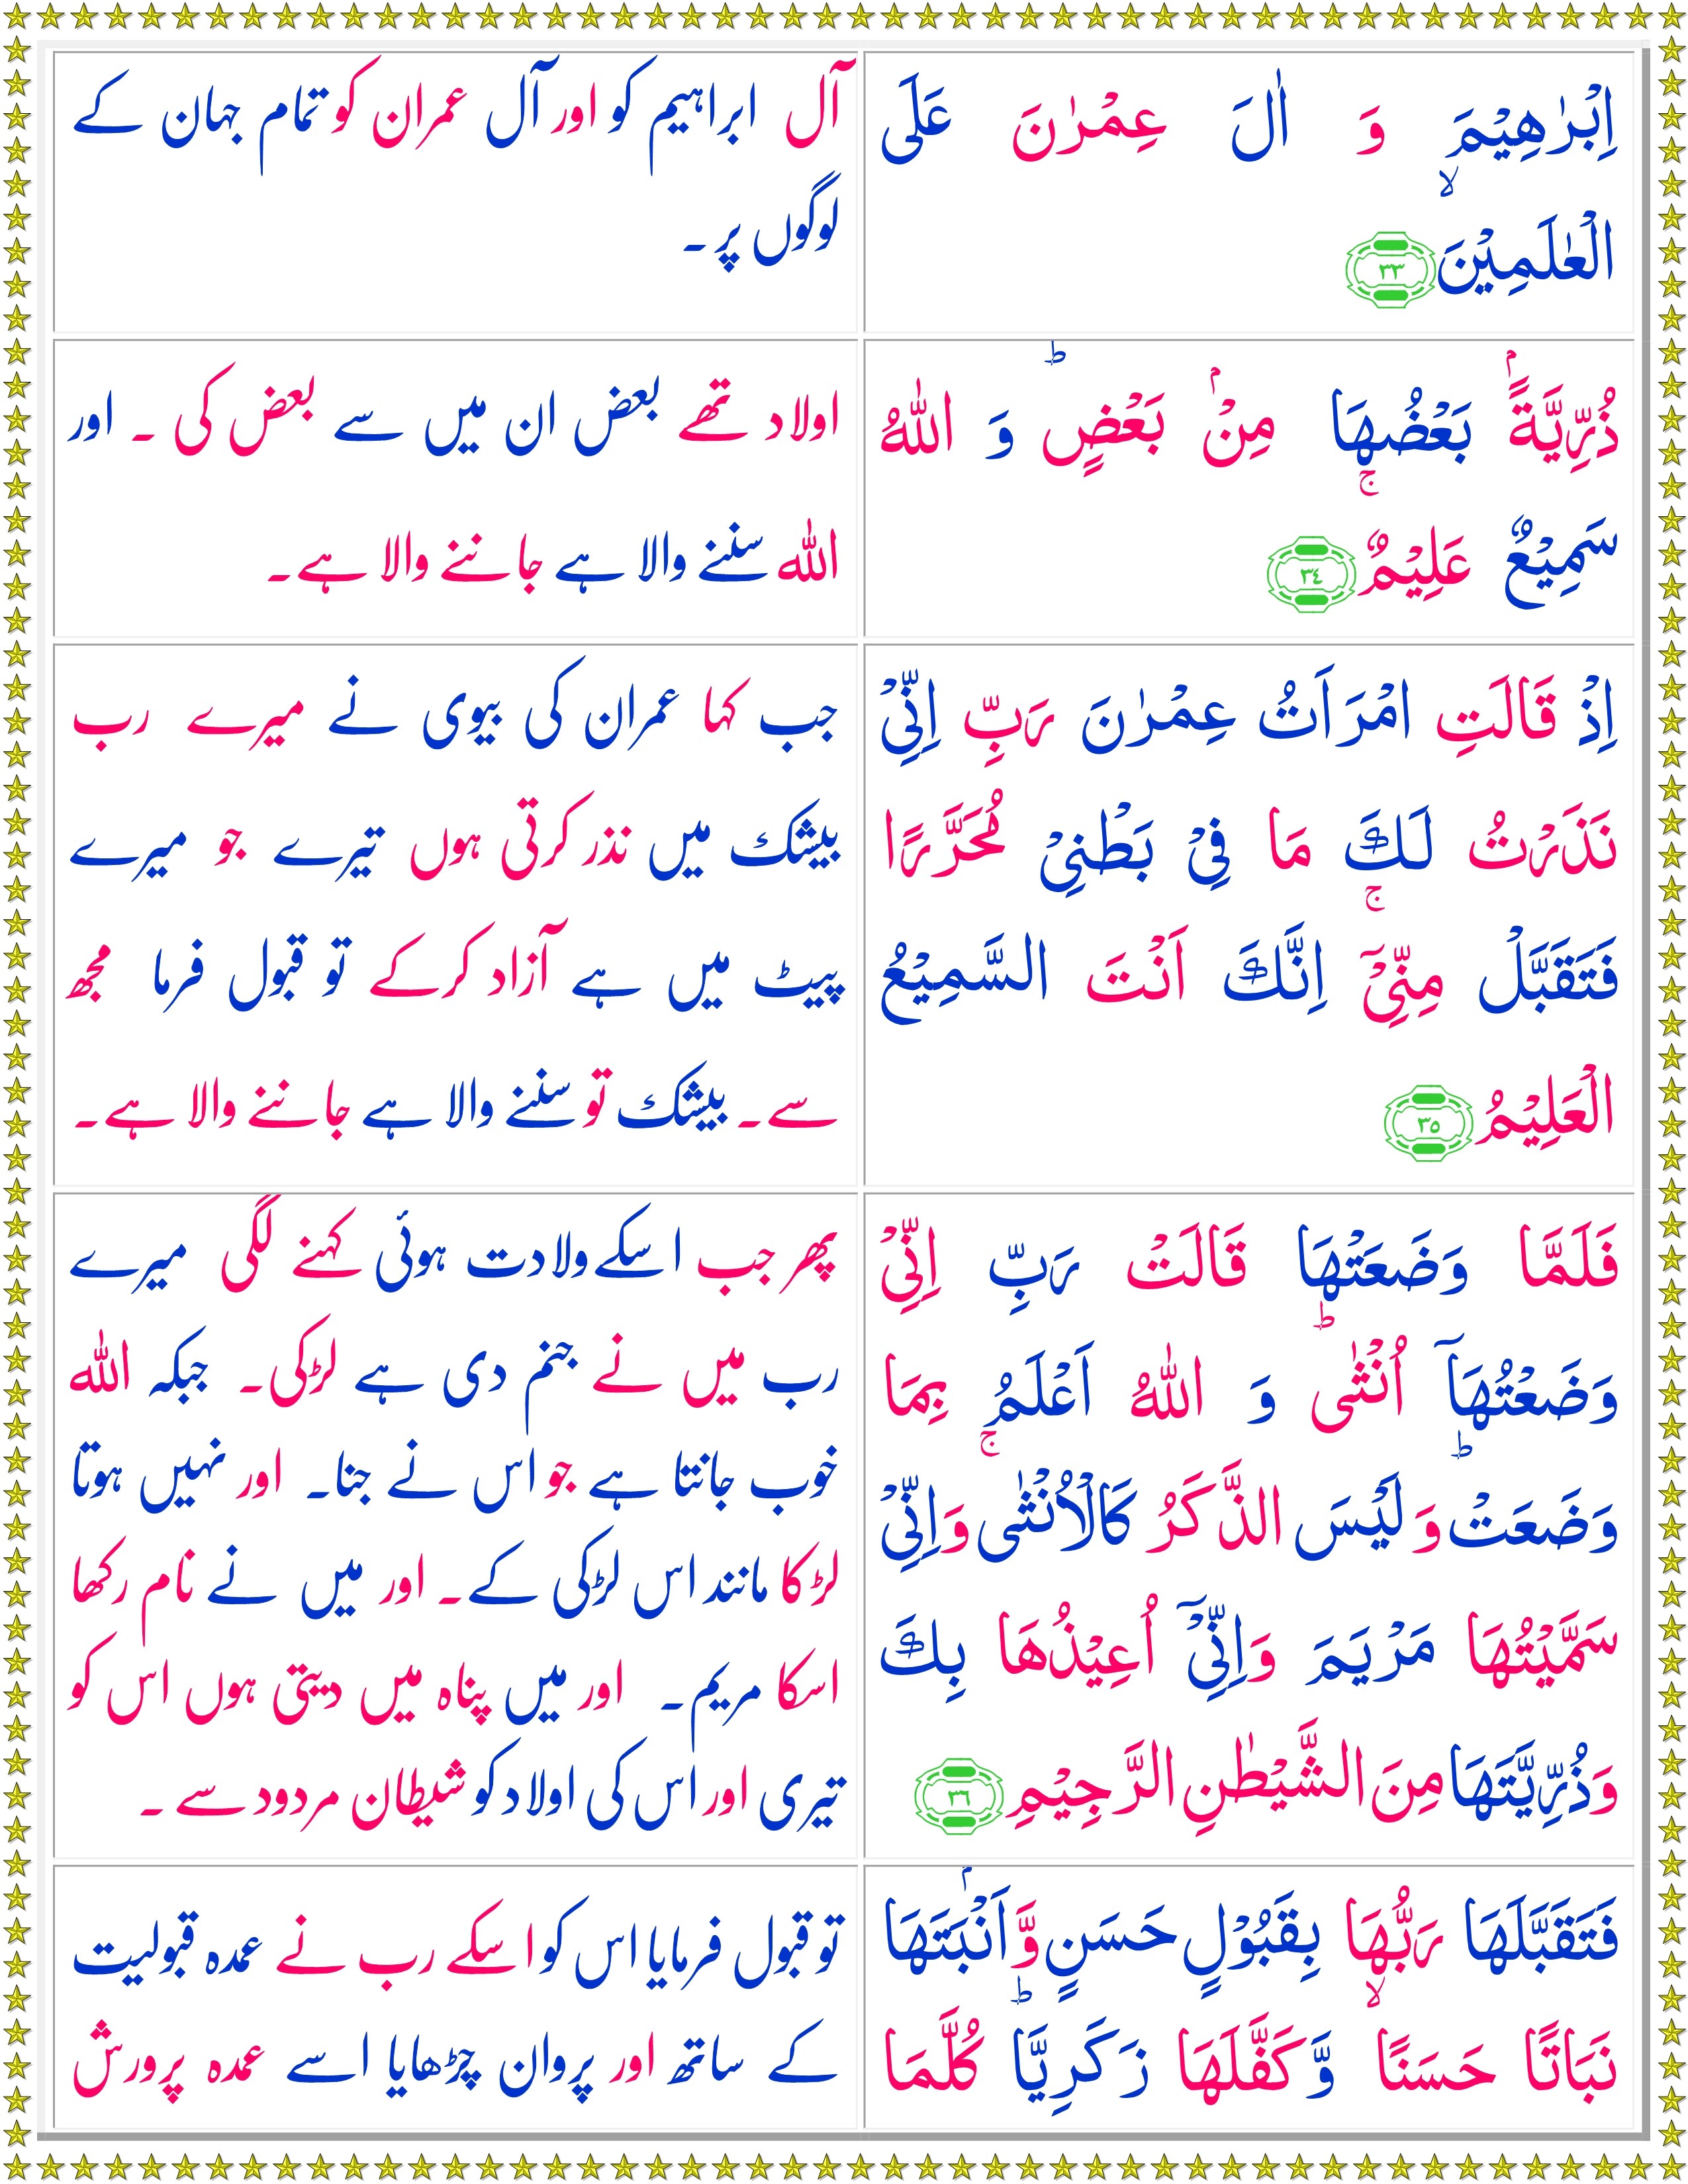 اِبْرٰهِيْمَ وَ اٰلَ عِمْرٰنَ عَلَى
الْعٰلَمِيْنَ ۙ ٣٣
آل ابراہیم کو اور آل عمران کو تمام جہان کے
لوگوں پر۔
ذُرِّيَّةًۢ بَعْضُهَا مِنْۢ بَعْضٍ ؕ وَ اللّٰهُ
سَمِيْعٌ عَلِيْمٌ ۚ ٣٤
اولاد تھے بعض ان میں سے بعض کی ۔ اور
اللہ سننے والا ہے جاننے والا ہے۔
اِذْ قَالَتِ امْرَاَتُ عِمْرٰنَ رَبِّ اِنِّىْ
نَذَرْتُ لَكَ مَا فِىْ بَطْنِىْ مُحَرَّرًا
فَتَقَبَّلْ مِنِّىْۤ ۚ اِنَّكَ اَنْتَ السَّمِيْعُ
الْعَلِيْمُ ٣٥
جب کہا عمران کی بیوی نے میرے رب
بیشک میں نذر کرتی ہوں تیرے جو میرے
پیٹ میں ہے آزاد کر کے تو قبول فرما مجھ
سے۔ بیشک تو سننے والا ہے جاننے والا ہے۔
فَلَمَّا وَضَعَتْهَا قَالَتْ رَبِّ اِنِّىْ
وَضَعْتُهَاۤ اُنْثٰى ؕ وَ اللّٰهُ اَعْلَمُ بِمَا
وَضَعَتْ ؕ وَ لَيْسَ الذَّكَرُ كَالْاُنْثٰى ۚ وَاِنِّىْ
سَمَّيْتُهَا مَرْيَمَ وَاِنِّىْۤ اُعِيْذُهَا بِكَ
وَذُرِّيَّتَهَا مِنَ الشَّيْطٰنِ الرَّجِيْمِ ٣٦
پھر جب اسکے ولادت ہوئی کہنے لگی میرے
رب میں نے جنم دی ہے لڑکی۔ جبکہ اللہ
خوب جانتا ہے جو اس نے جنا۔ اور نہیں ہوتا
لڑکا مانند اس لڑکی کے۔ اور میں نے نام رکھا
اسکا مریم۔ اور میں پناہ میں دیتی ہوں اس کو
تیری اور اس کی اولاد کو شیطان مردود سے ۔
فَتَقَبَّلَهَا رَبُّهَا بِقَبُوْلٍ حَسَنٍ وَّ اَنْۢبَتَهَا
نَبَاتًا حَسَنًا ۙ وَّ كَفَّلَهَا زَكَرِيَّا ؕ كُلَّمَا
تو قبول فرمایا اس کو اسکے رب نے عمدہ قبولیت
کے ساتھ اور پروان چڑھایا اسے عمدہ پرورش